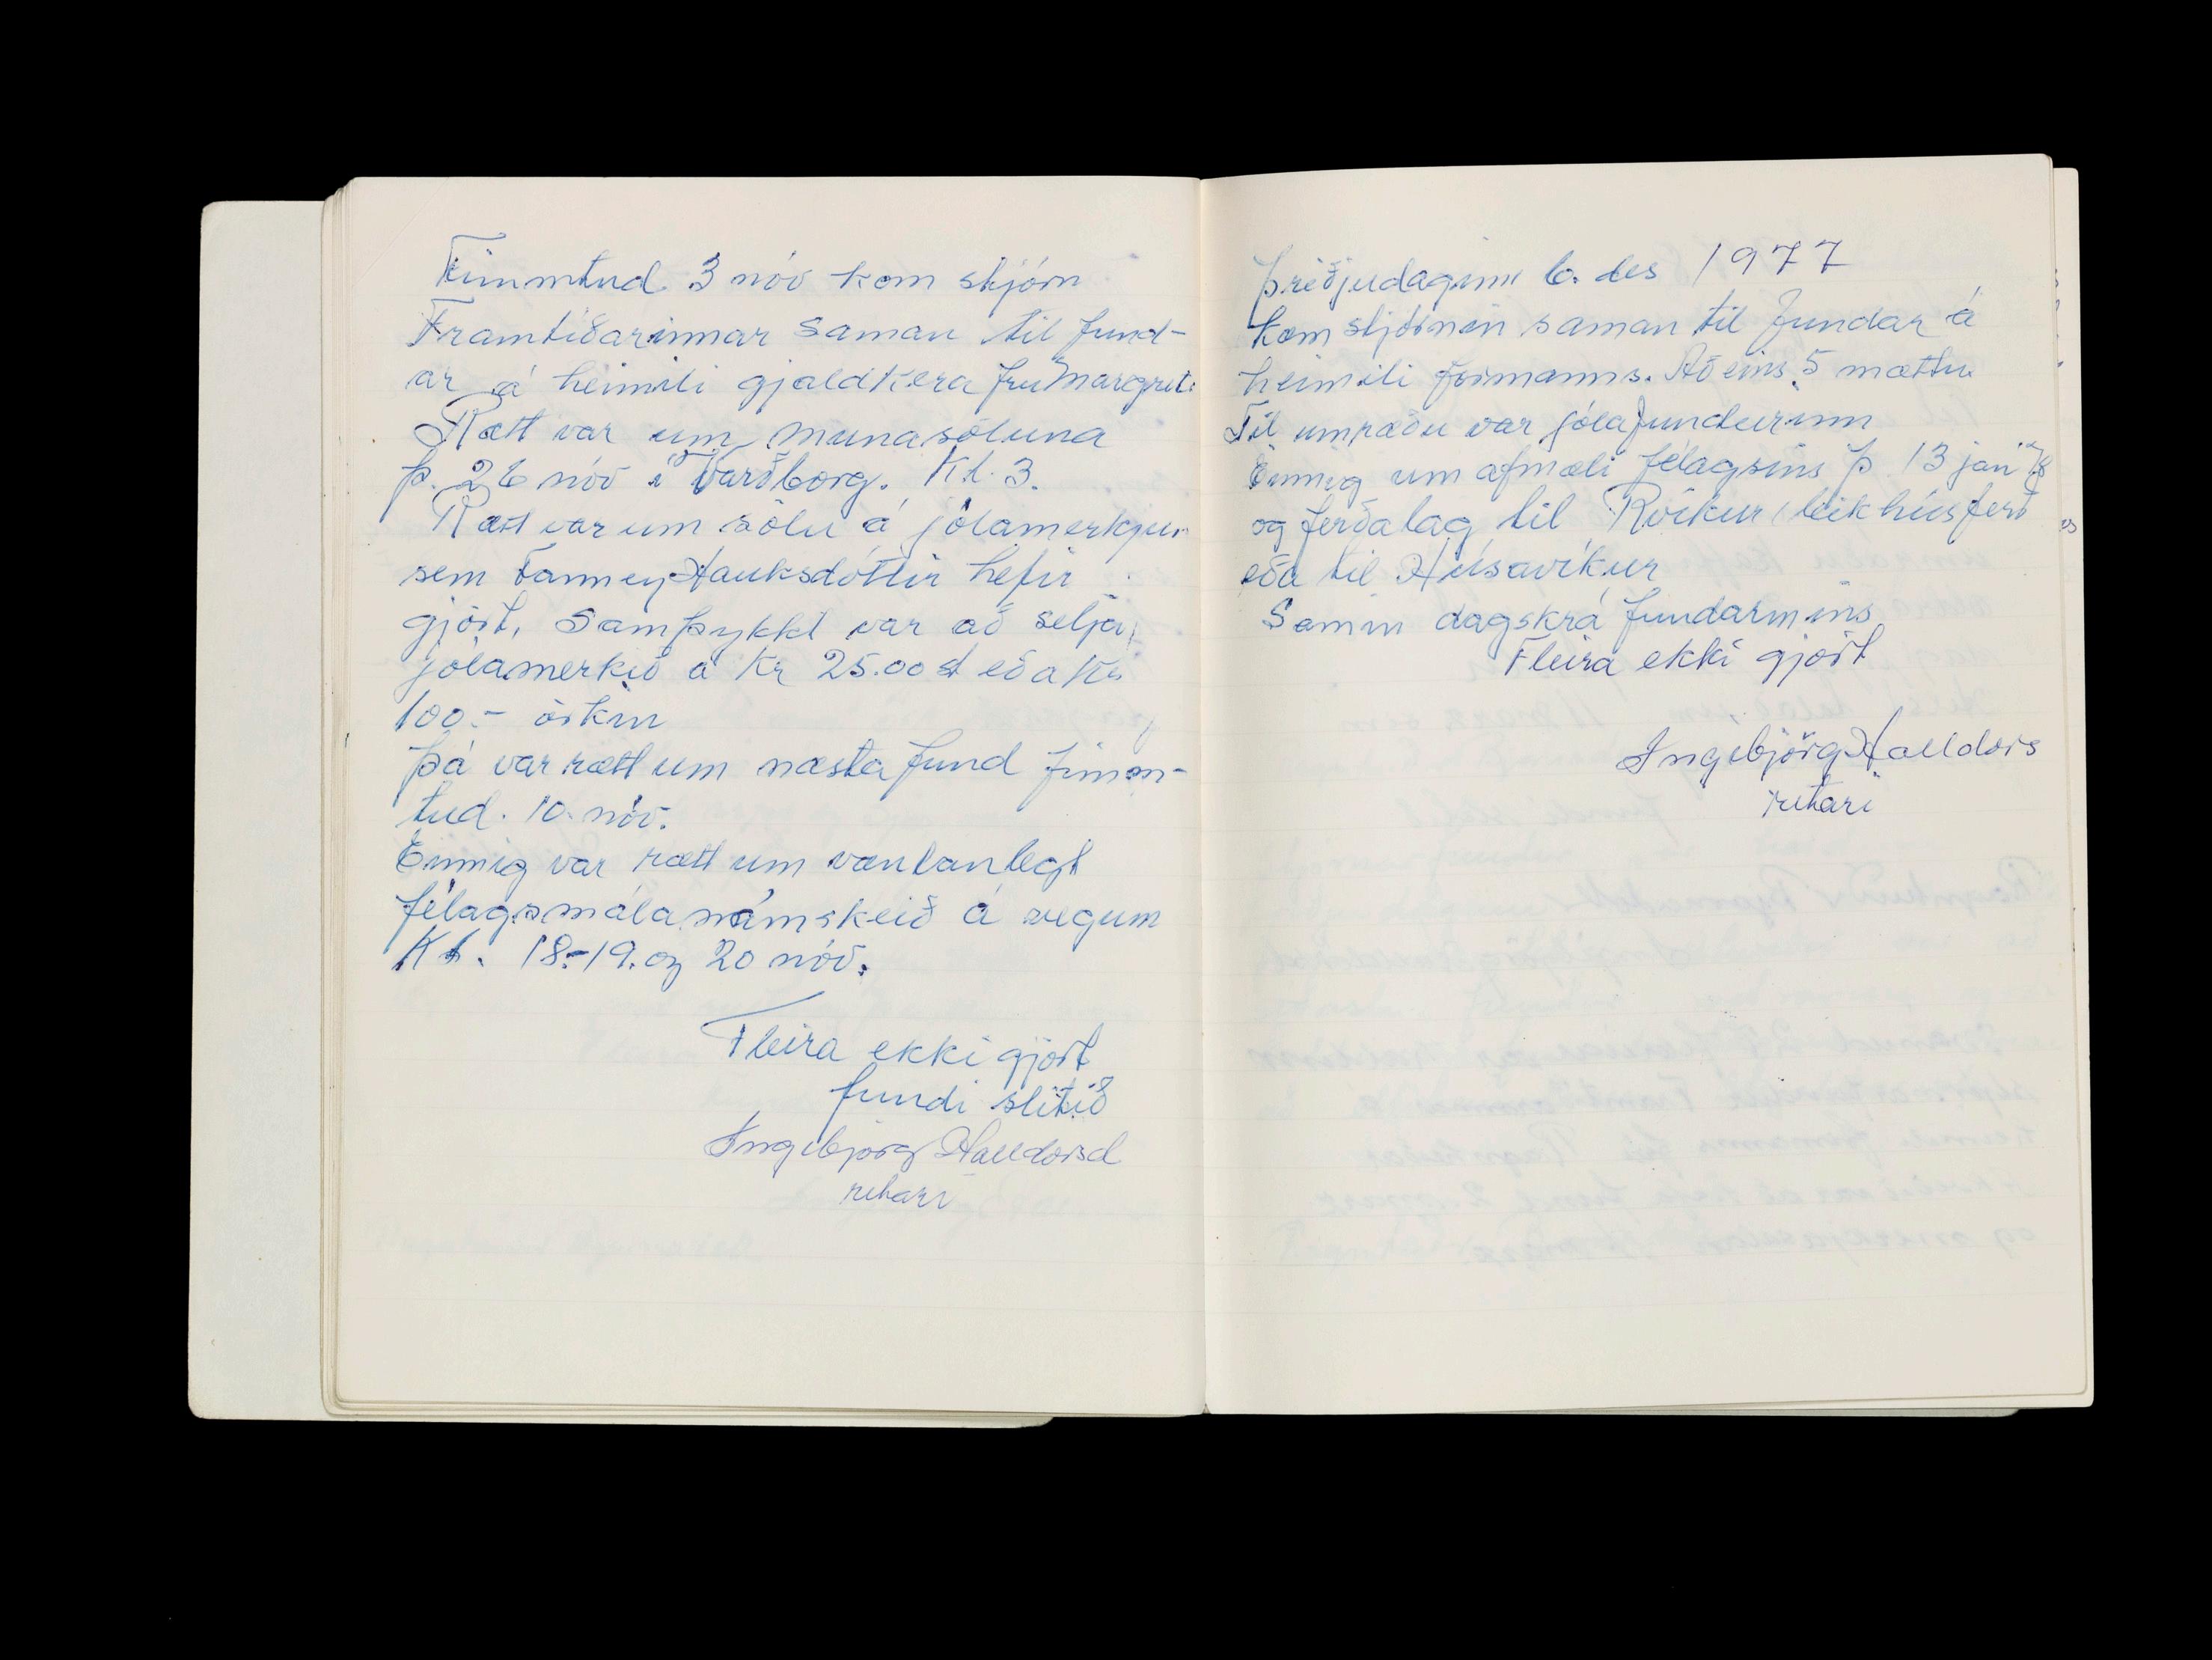 Fimmtud. 3 nóv kom stjórn
Framtíðarinnar saman til fund-
ar á heimili gjaldkera frú Margret.
Rætt var um munasöluna
þ. 26 nóv í Varðborg. Kl. 3.
Rætt var um sölu á jólamerkjum
sem Fanney Hauksdóttir hefir
gjört, Samþykkt var að selja
jólamerkið á Kr 25.00 st eða Kr.
100.- örkin
Þá var rætt um næsta fund fimm-
tud. 10. nóv.
Einnig var rætt um væntanlegt
félagsmálanámskeið á vegum
18.-19. og 20 nóv.
Fleira ekki gjört
fundi slitið
Ingibjörg Halldórsd
ritari
Þriðjudaginn 6. des 1977
kom stjórnin saman til fundar á
heimili formanns. Aðeins 5 mættu
Til umræðu var jólafundurinn
Einnig um afmæli félagsins þ 13 jan '78
og ferðalag til Rvíkur, leikhúsferð
eða til Húsavíkur
Samin dagskrá fundarmins
Fleira ekki gjört
Ingibjörg Halldórs
ritari